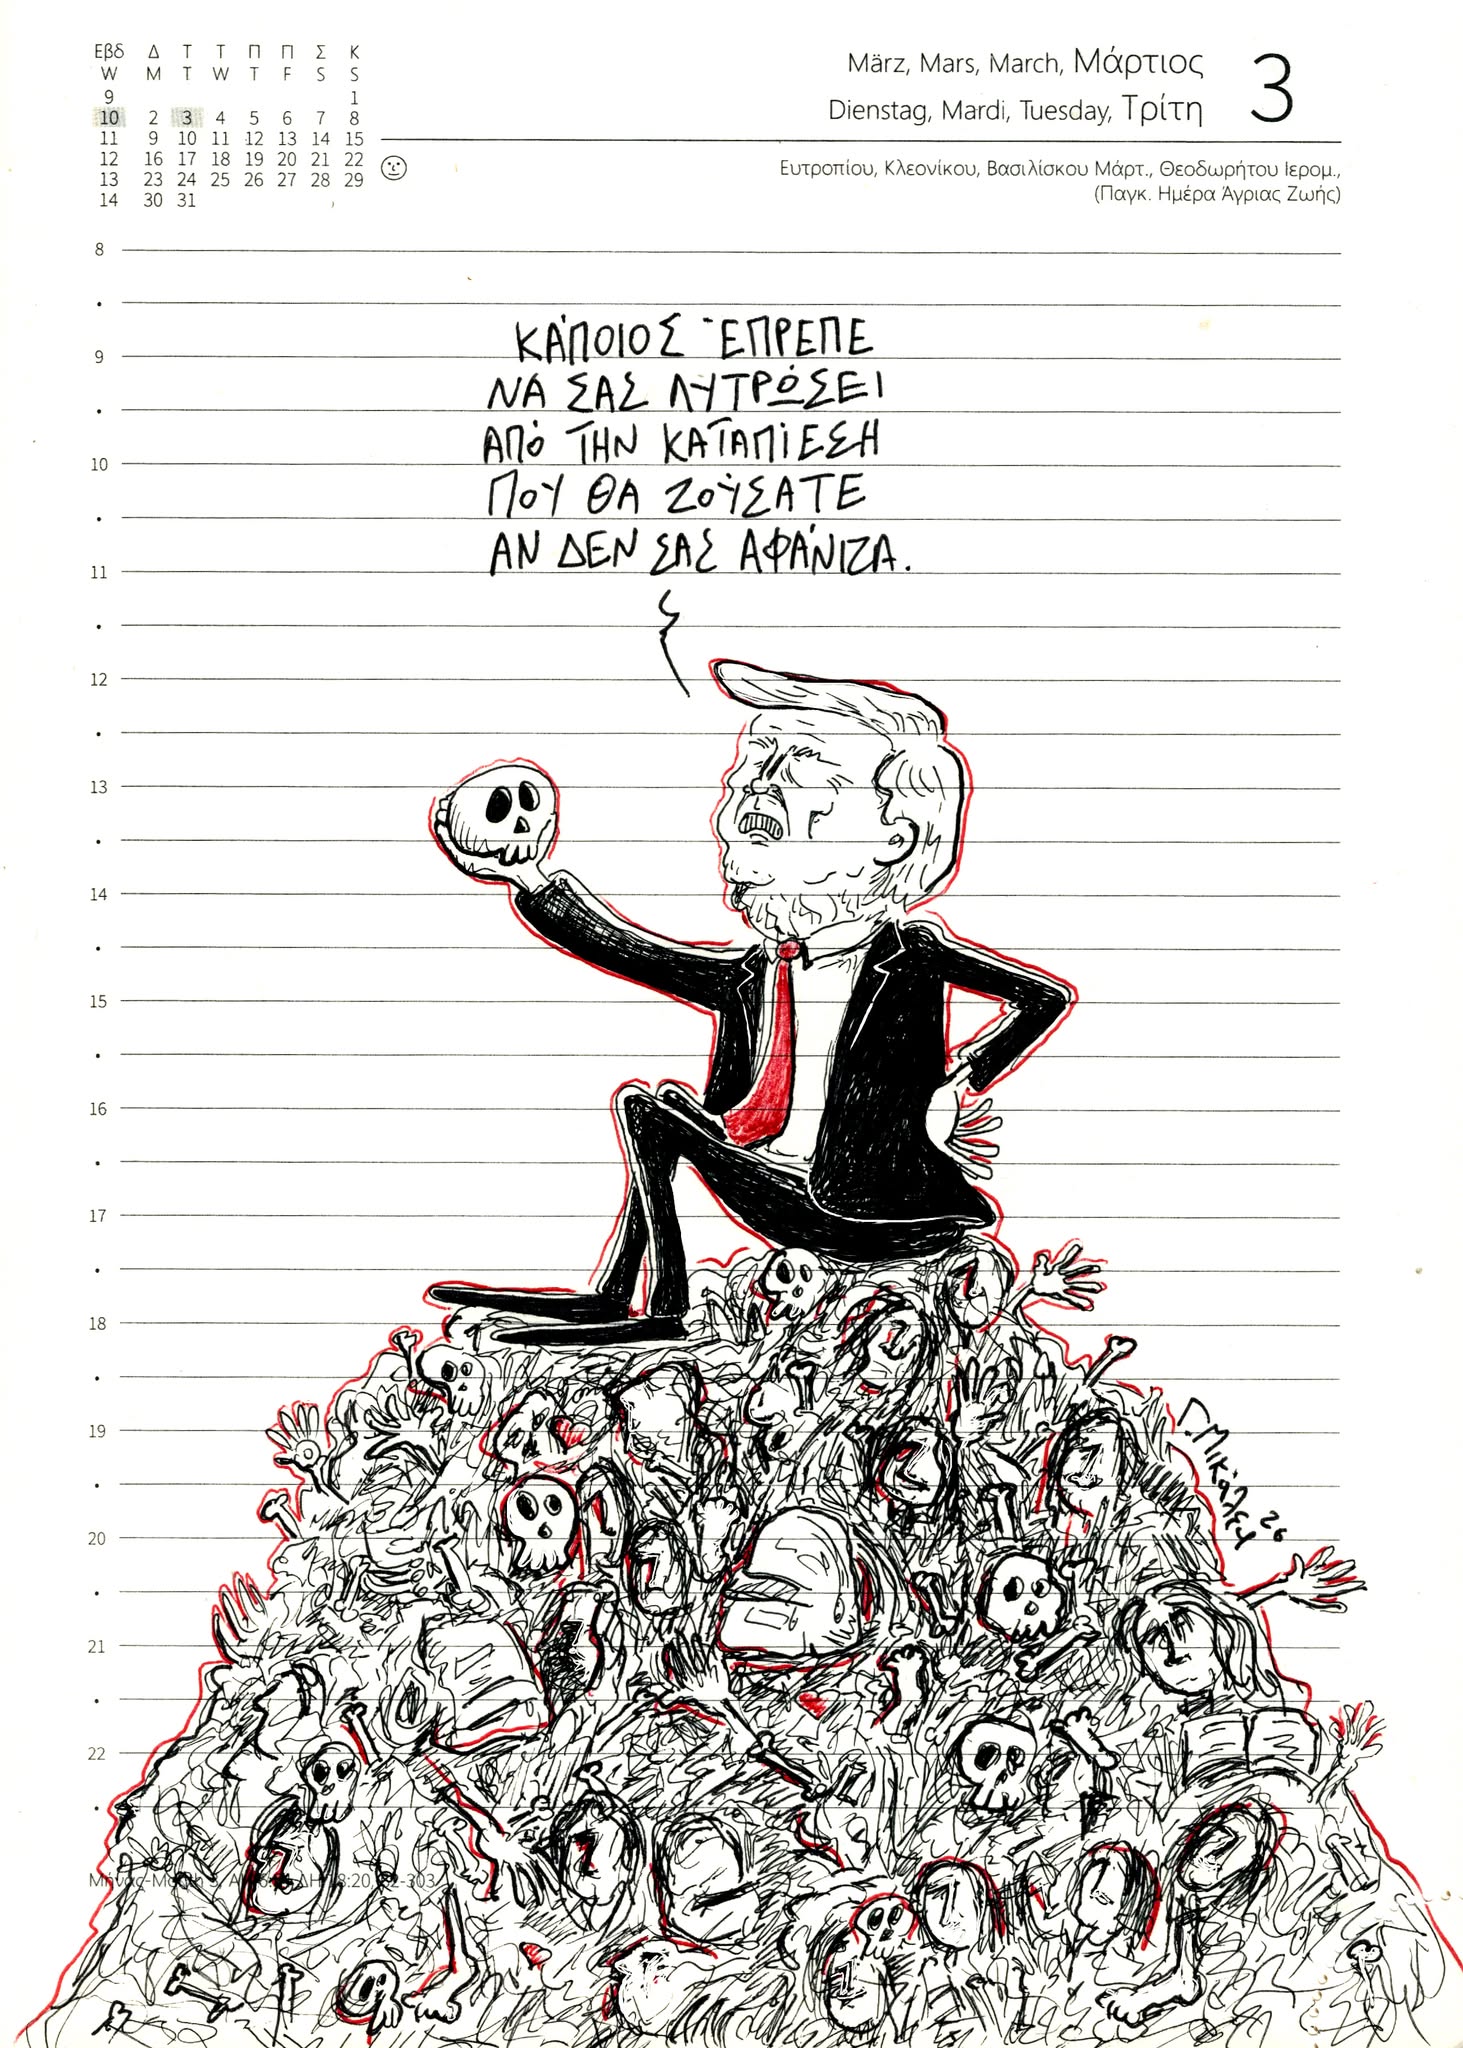 Εβδ Δ Τ Τ Π Π Σ Κ
W M T W T F S S
9 1
10 2 3 4 5 6 7 8
11 9 10 11 12 13 14 15
12 16 17 18 19 20 21 22
13 23 24 25 26 27 28 29
14 30 31
März, Mars, March, Μάρτιος
Dienstag, Mardi, Tuesday, Τρίτη
3
Ευτροπίου, Κλεονίκου, Βασιλίσκου Μάρτ., Θεοδωρήτου Ιερομ.,
(Παγκ. Ημέρα Άγριας Ζωής)
8
9
10
11
12
13
14
15
16
17
18
19
20
21
22
ΚΆΠΟΙΟΣ ΈΠΡΕΠΕ
ΝΑ ΣΑΣ ΛΥΤΡΏΣΕΙ
ΑΠΌ ΤΗΝ ΚΑΤΑΠΊΕΣΗ
ΠΟΥ ΘΑ ΖΟΎΣΑΤΕ
ΑΝ ΔΕΝ ΣΑΣ ΑΦΆΝΙΖΑ.
Γ. Μικάλεφ 26